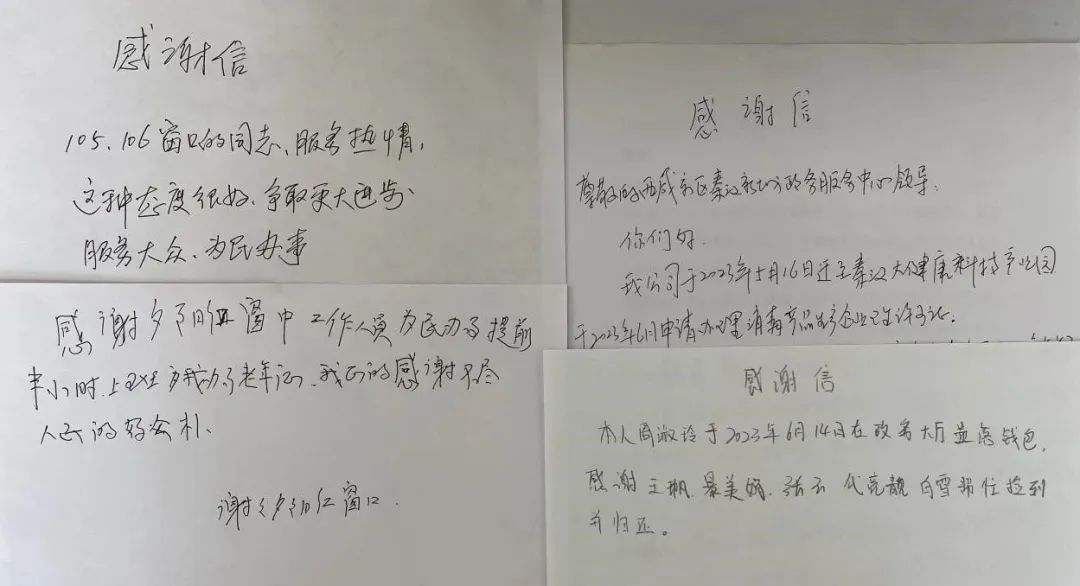 感谢信
105、106窗口的同志、服务热情,
这种态度很好、争取更大进步
服务大众、为民办事
感谢夕阳红窗口工作人员为民办事提前
半小时上班 我办了老年证,我们的感谢不尽
人民的好公仆、
谢谢夕阳红窗口.
感谢信
尊敬的西咸新区秦汉新城政务服务中心领导、
你们好.
我公司于2023年5月16日迁至秦汉大健康科技产业园
于2023年6月申请办理消毒产品生产企业卫生许可证.
感谢信
本人周淑玲于2023年6月14日在政务大厅遗落钱包,
感谢王 景美娟、张 代亮靓 白雪 捡到
并归还。